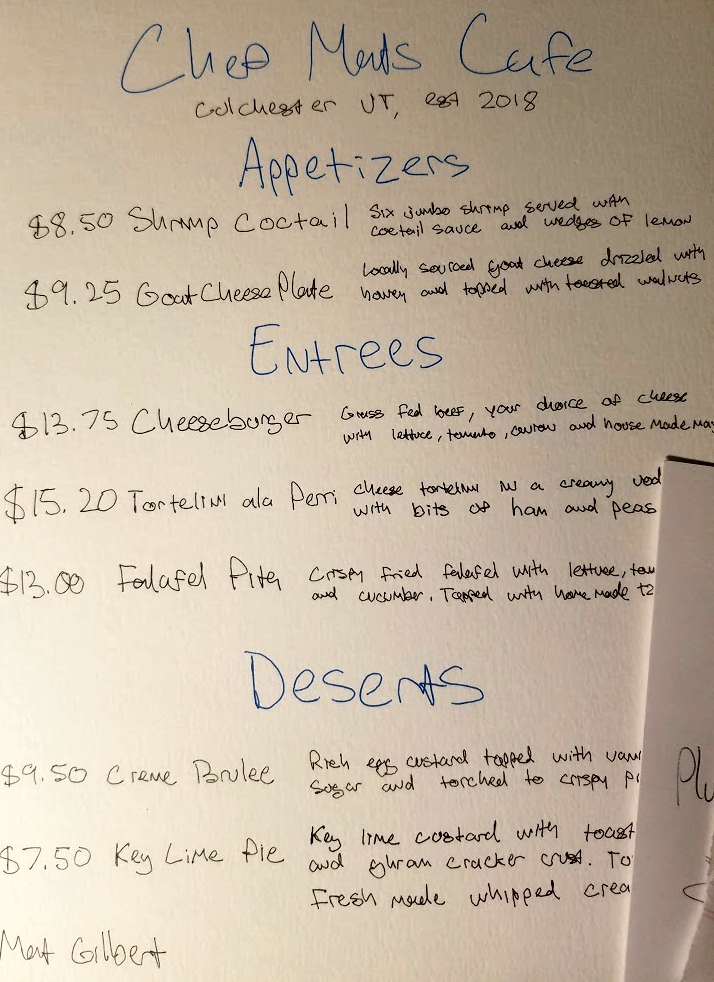 Chef Mats Cafe
Colchester VT, est 2018
Appetizers
$8.50 Shrimp Coctail Six jumbo shrimp served with
coctail sauce and wedges of lemon
$9.25 Goat Cheese Plate Locally sourced goat cheese drizzled with
honey and topped with toasted walnuts
Entrees
$13.75 Cheeseburger Grass fed beef, your choice of cheese
with lettuce, tomato, onion and house made may
$15.20 Tortelini ala Perri cheese tortelini in a creamy vod
with bits of ham and peas
$13.00 Falafel Pita Crispy fried falafel with lettuce, tom
and cucumber. Topped with home made tz
Deserts
$9.50 Creme Brulee Rich egg custard topped with vani
sugar and torched to crispy p
$7.50 Key Lime Pie Key lime custard with toast
and ghram cracker crust. To
Fresh made whipped crea
Mat Gilbert
Plu